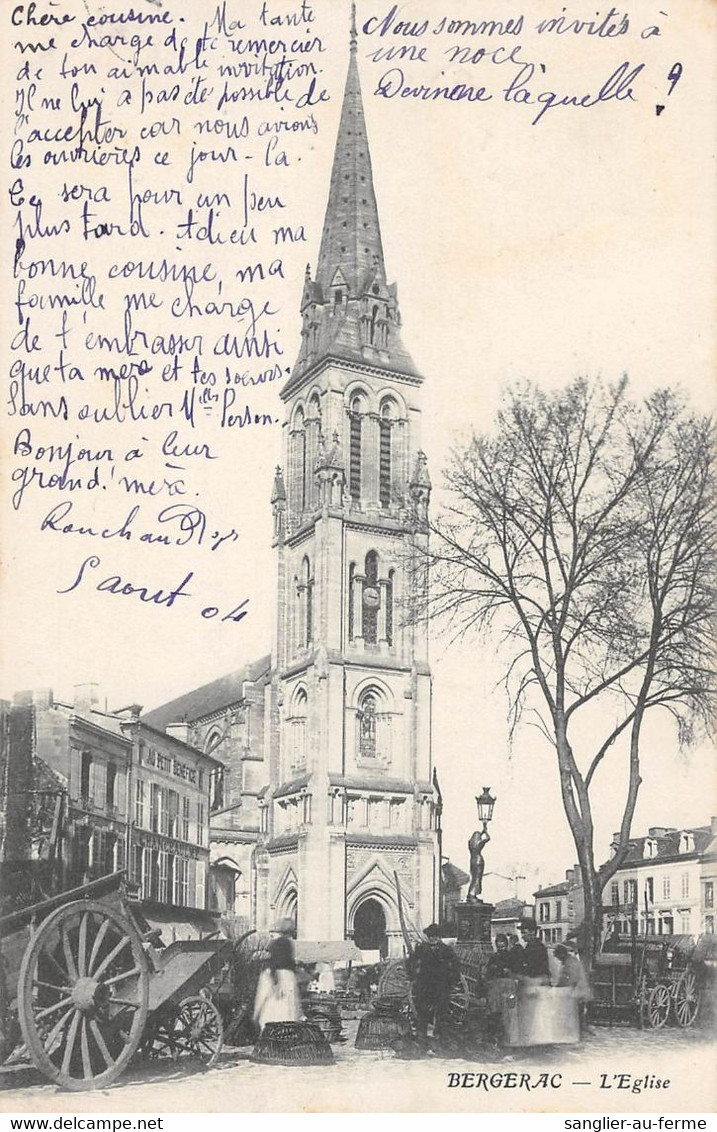 Chère cousine. Ma tante
me charge de te remercier
de ton aimable invitation.
Il ne lui a pas été possible de
l'accepter car nous avions
les ouvrières ce jour-là.
Ce sera pour un peu
plus tard. Adieu ma
bonne cousine, ma
famille me charge
de t'embrasser ainsi
que ta mère et tes soeurs.
Sans oublier Mlles Person.
Bonjour à leur
grand'mère.
5 aout 04
Nous sommes invités à
une noce
Devine laquelle !
AU PETIT BENEFICE
BERGERAC — L'Eglise
sanglier-au-ferme